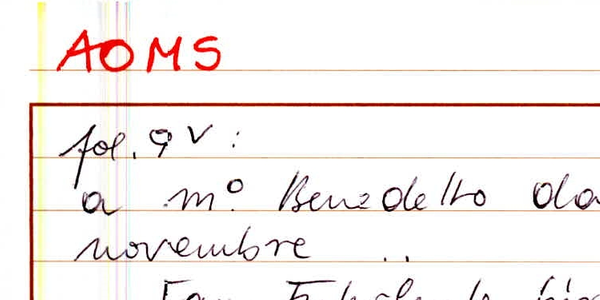 AOMS
fol. 9 v :
a m° Benedetto da
novembre ..